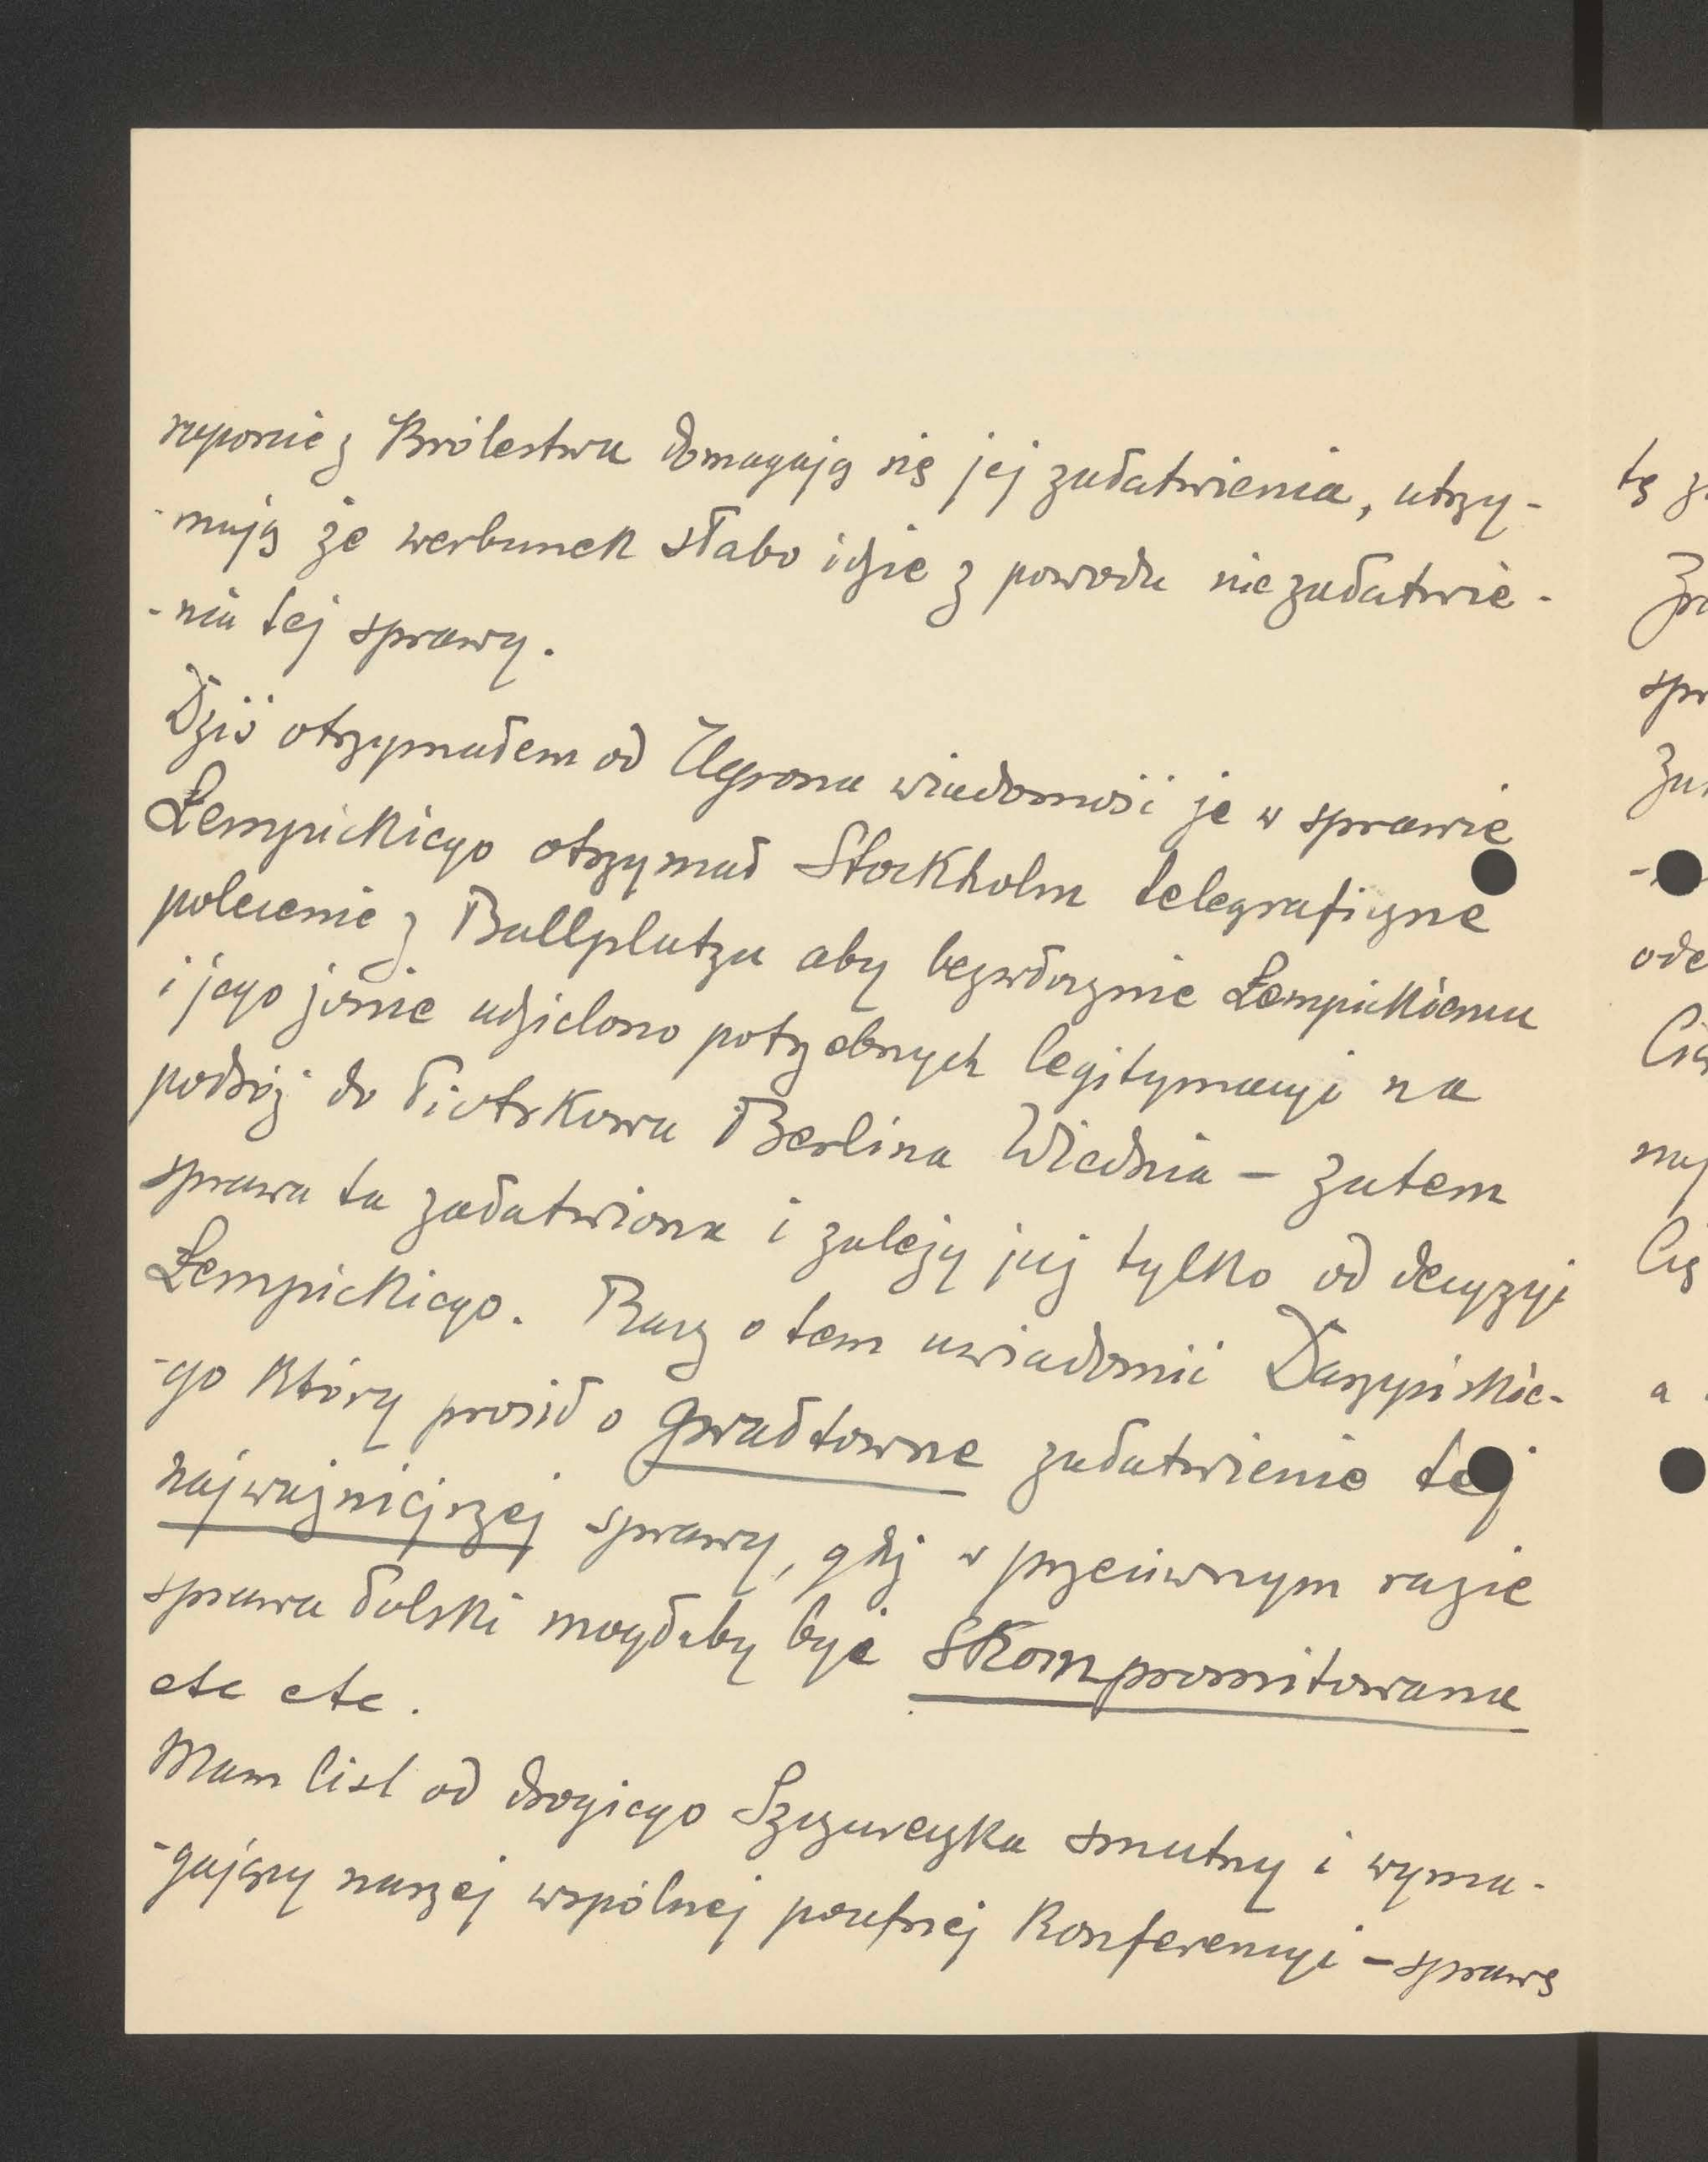 raporcie z Królestwa domagają się jej załatwienia, utrzy-
-mują że werbunek słabo idzie z powodu niezałatwie-
-nia tej sprawy.
Dziś otrzymałem od Ugrona wiadomość że w sprawie
Łempickiego otrzymał Stockholm telegraficzne
polecenie z Ballplatzu aby bezwłocznie Łempickiemu
i jego żonie udzielono potrzebnych legitymacyi na
podróż do Piotrkowa Berlina Wiednia – zatem
sprawa ta załatwiona i zależy już tylko od decyzyi
Łempickiego. Racz o tem uwiadomić Daszyńskie-
-go który prosił o gwałtowne załatwienie tej
najważniejszej sprawy, gdyż w przeciwnym razie
sprawa Polski mogłaby być skompromitowana
etc etc.
Mam list od drogiego Szczurczyka smutny i wyma-
-gający naszej wspólnej poufnej Konferencyi – sprawę
tę
spr
a